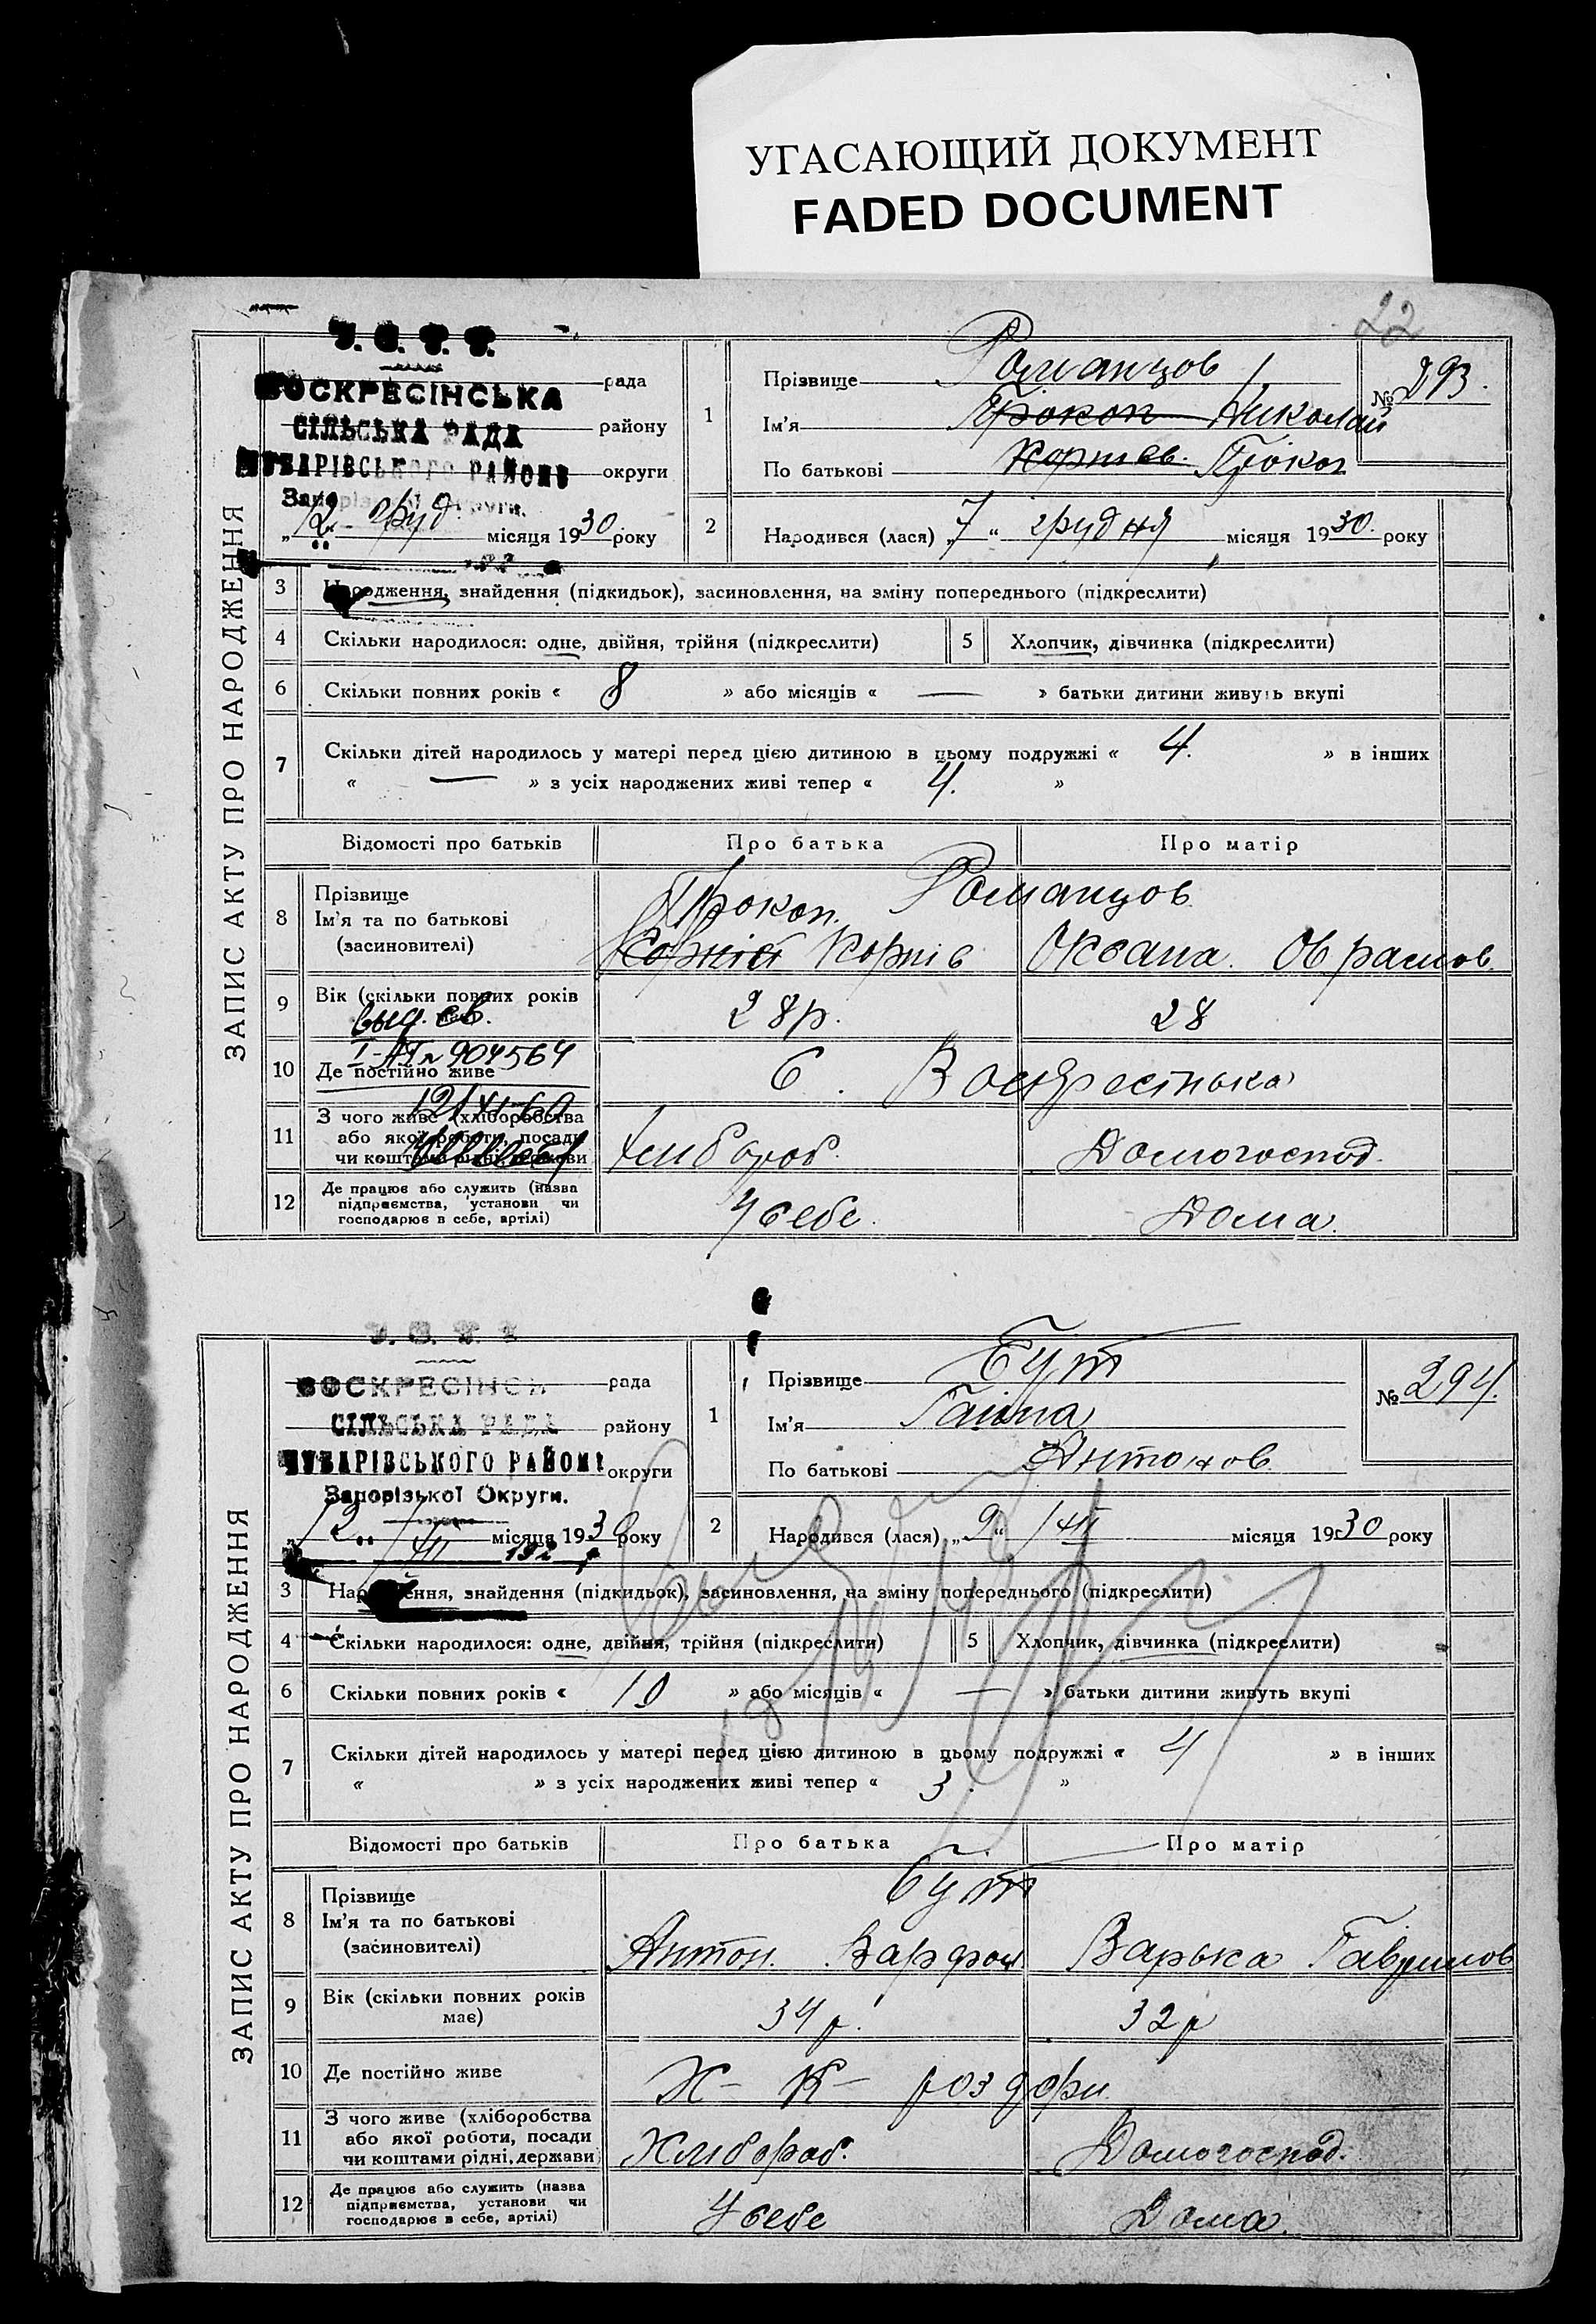 УГАСАЮЩИЙ ДОКУМЕНТ
FADED DOCUMENT
22
ЗАПИС АКТУ ПРО НАРОДЖЕННЯ
У. С. Р. Р.
ВОСКРЕСІНСЬКА рада
СІЛЬСЬКА РАДА району
ЧУБАРІВСЬКОГО РАЙОНУ округи
Запорізької Округи.
„12“ груд місяця 1930 року
1 Прізвище Романцов
№ 293.
Ім'я Прокоп Николай
По батькові Корнієв. Прокоп
2 Народився (лася) „7“ грудня місяця 1930. року
3 Народження, знайдення (підкидьок), засиновлення, на зміну попереднього (підкреслити)
4 Скільки народилося: одне, двійня, трійня (підкреслити) 5 Хлопчик, дівчинка (підкреслити)
6 Скільки повних років « 8 » або місяців « — » батьки дитини живуть вкупі
7 Скільки дітей народилось у матері перед цією дитиною в цьому подружжі « 4. » в інших
« — » з усіх народжених живі тепер « 4. »
Відомості про батьків Про батька Про матір
8 Прізвище Романцов
Ім'я та по батькові Прокоп.
(засиновителі) Корній Корнів Оксана. Оврамов.
9 Вік (скільки повних років має) 28р. 28
выд. св.
I-АП № 904564
10 Де постійно живе С. Воскресінька
12/XI-60
11 З чого живе (хліборобства
або якої роботи, посади
чи коштами рідні, держави Хлібороб. Домогоспод.
12 Де працює або служить (назва
підприємства, установи чи
господарює в себе, артілі) У себе. Дома.
ЗАПИС АКТУ ПРО НАРОДЖЕННЯ
У. С. Р. Р.
ВОСКРЕСІНСЬ рада
СІЛЬСЬКА РАДА району
ЧУБАРІВСЬКОГО РАЙОНУ округи
Запорізької Округи.
„12“ XII місяця 1930 року
192
1 Прізвище Бут
№ 294.
Ім'я Ганна
По батькові Антонов.
2 Народився (лася) „9“ XII місяця 1930 року
3 Народження, знайдення (підкидьок), засиновлення, на зміну попереднього (підкреслити)
4 Скільки народилося: одне, двійня, трійня (підкреслити) 5 Хлопчик, дівчинка (підкреслити)
6 Скільки повних років « 10 » або місяців « — » батьки дитини живуть вкупі
7 Скільки дітей народилось у матері перед цією дитиною в цьому подружжі « 4 » в інших
« » з усіх народжених живі тепер « 3. »
Відомості про батьків Про батька Про матір
8 Прізвище Бут
Ім'я та по батькові
(засиновителі) Антон. Варфол Варька Гаврилов
9 Вік (скільки повних років
має) 34 р. 32 р
10 Де постійно живе Х- К- роздори.
11 З чого живе (хліборобства
або якої роботи, посади
чи коштами рідні, держави Хлібороб. Домогоспод.
12 Де працює або служить (назва
підприємства, установи чи
господарює в себе, артілі) У себе Дома.